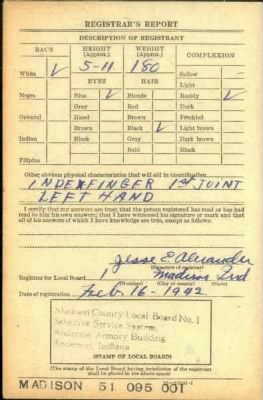 REGISTRAR'S REPORT
DESCRIPTION OF REGISTRANT
RACE HEIGHT (Approx.) WEIGHT (Approx.) COMPLEXION
5-11 180
White ✓ Sallow
EYES HAIR Light
Negro Blue ✓ Blonde Ruddy ✓
Gray Red Dark
Oriental Hazel Brown Freckled
Brown Black ✓ Light brown
Indian Black Gray Dark brown
Bald Black
Filipino
Other obvious physical characteristics that will aid in identification
INDEXFINGER 1ST JOINT
LEFT HAND
I certify that my answers are true; that the person registered has read or has had
read to him his own answers; that I have witnessed his signature or mark and that
all of his answers of which I have knowledge are true, except as follows:
Jesse E Alexander
(Signature of registrar)
Registrar for Local Board 1 Madison Ind
(Number) (City or county) (State)
Date of registration Feb. 16-1942
Madison County Local Board No. 1
Selective Service System
Anderson Armory Building
Anderson, Indiana
(STAMP OF LOCAL BOARD)
(The stamp of the Local Board having jurisdiction of the registrant
shall be placed in the above space)
MADISON 51 095 00T